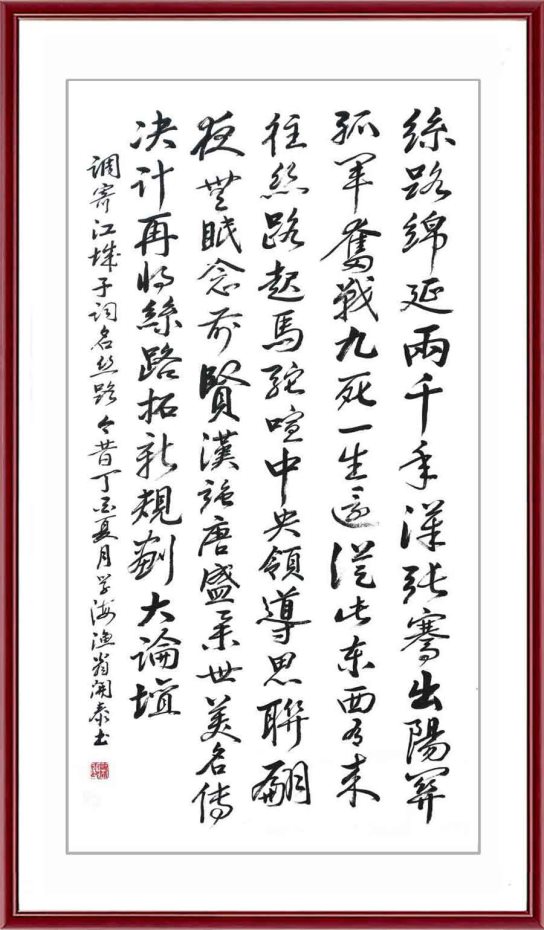 絲路綿延兩千年漢張騫出陽関
孤軍奮戰九死一生還從此東西有来
往絲路起馬駝喧中央領導思聯翩
夜無眠念前賢漢強唐盛舉世美名傳
决計再将絲路拓新規劃大論壇
調寄江城子詞名丝路今昔丁酉夏月学海漁翁開泰书